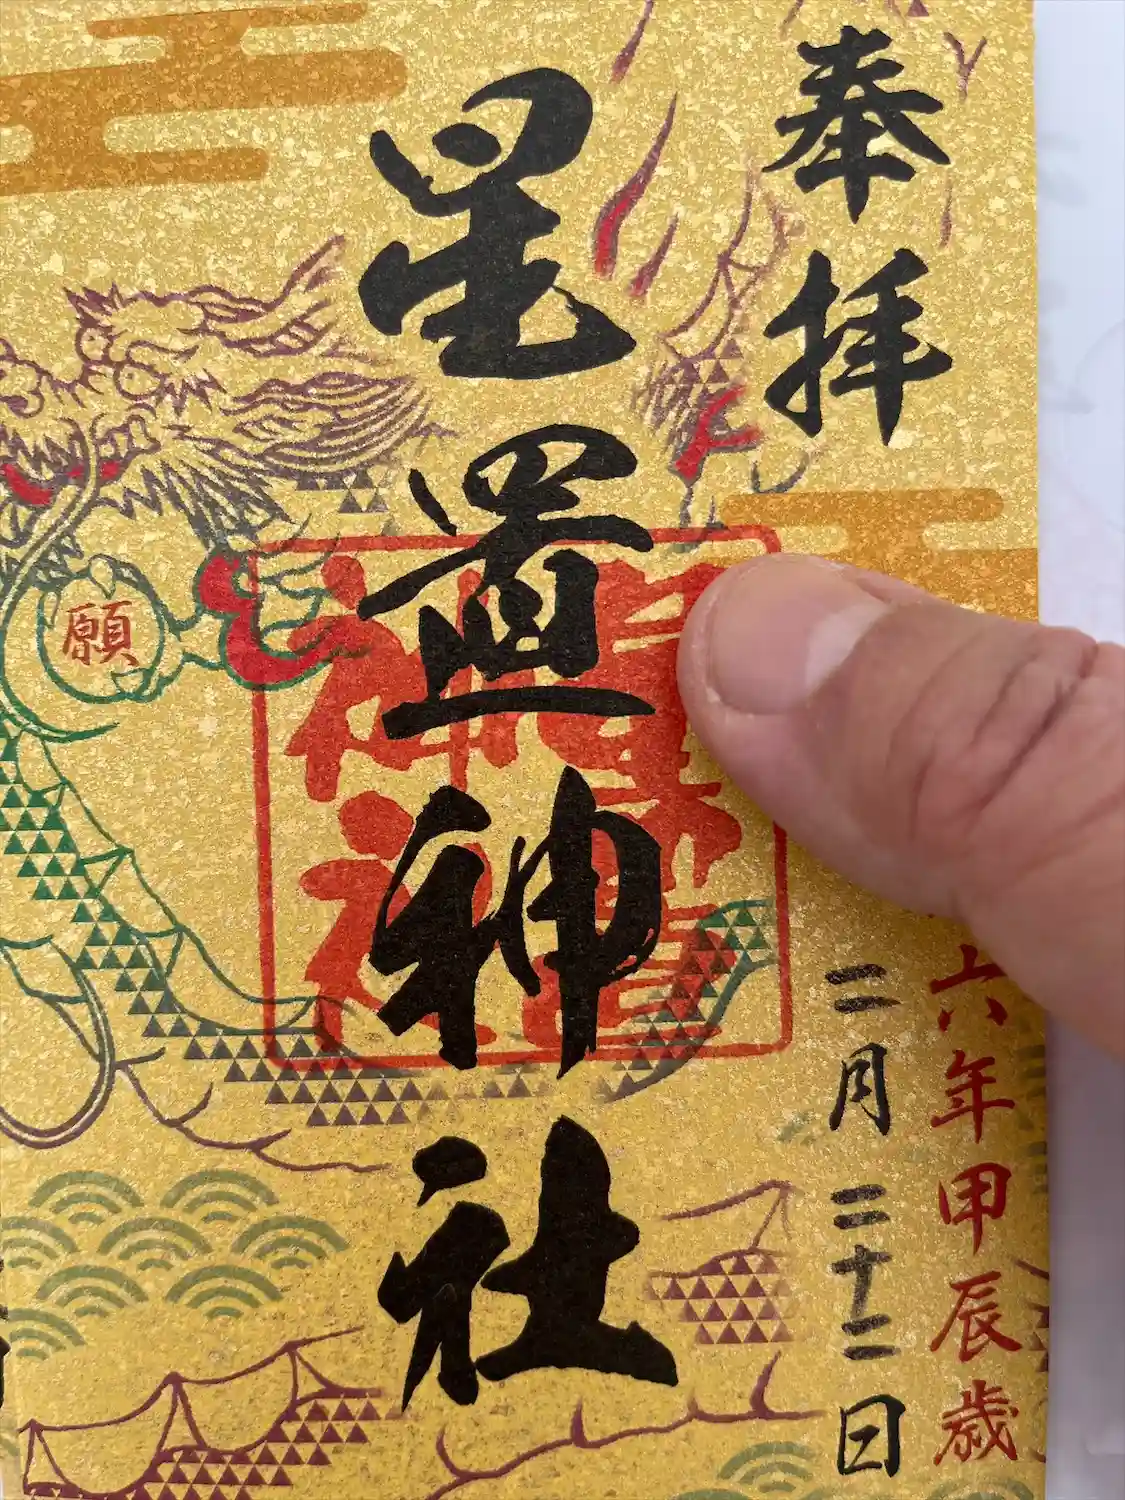 奉拝
六年甲辰歳
二月二十二日
星置神社
星置
神社
願